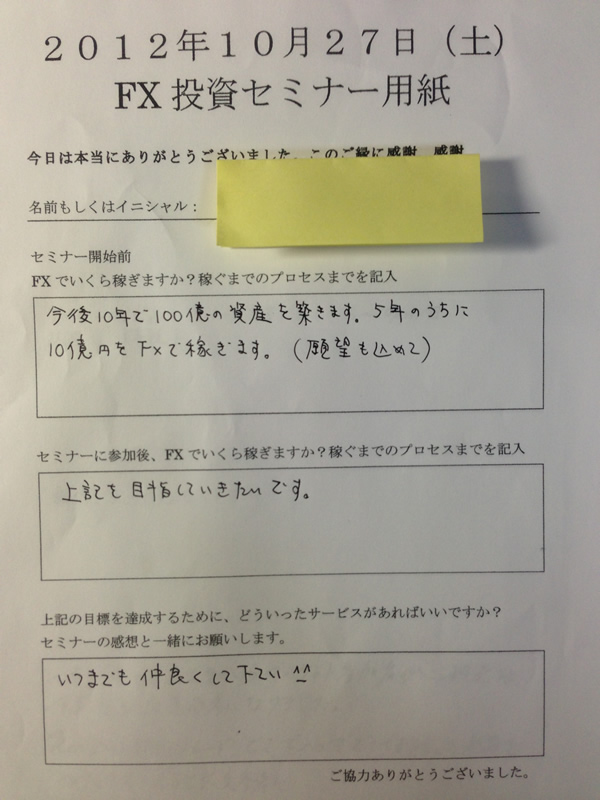 ２０１２年１０月２７日（土）
FX 投資セミナー用紙
今日は本当にありがとうございました。このご縁に感謝 感謝
名前もしくはイニシャル：
セミナー開始前
FX でいくら稼ぎますか？稼ぐまでのプロセスまでを記入
今後10年で100億の資産を築きます。5年のうちに
10億円をFxで稼ぎます。(願望も込めて)
セミナーに参加後、FX でいくら稼ぎますか？稼ぐまでのプロセスまでを記入
上記を目指していきたいです。
上記の目標を達成するために、どういったサービスがあればいいですか？
セミナーの感想と一緒にお願いします。
いつまでも仲良くして下さい ^_^
ご協力ありがとうございました。